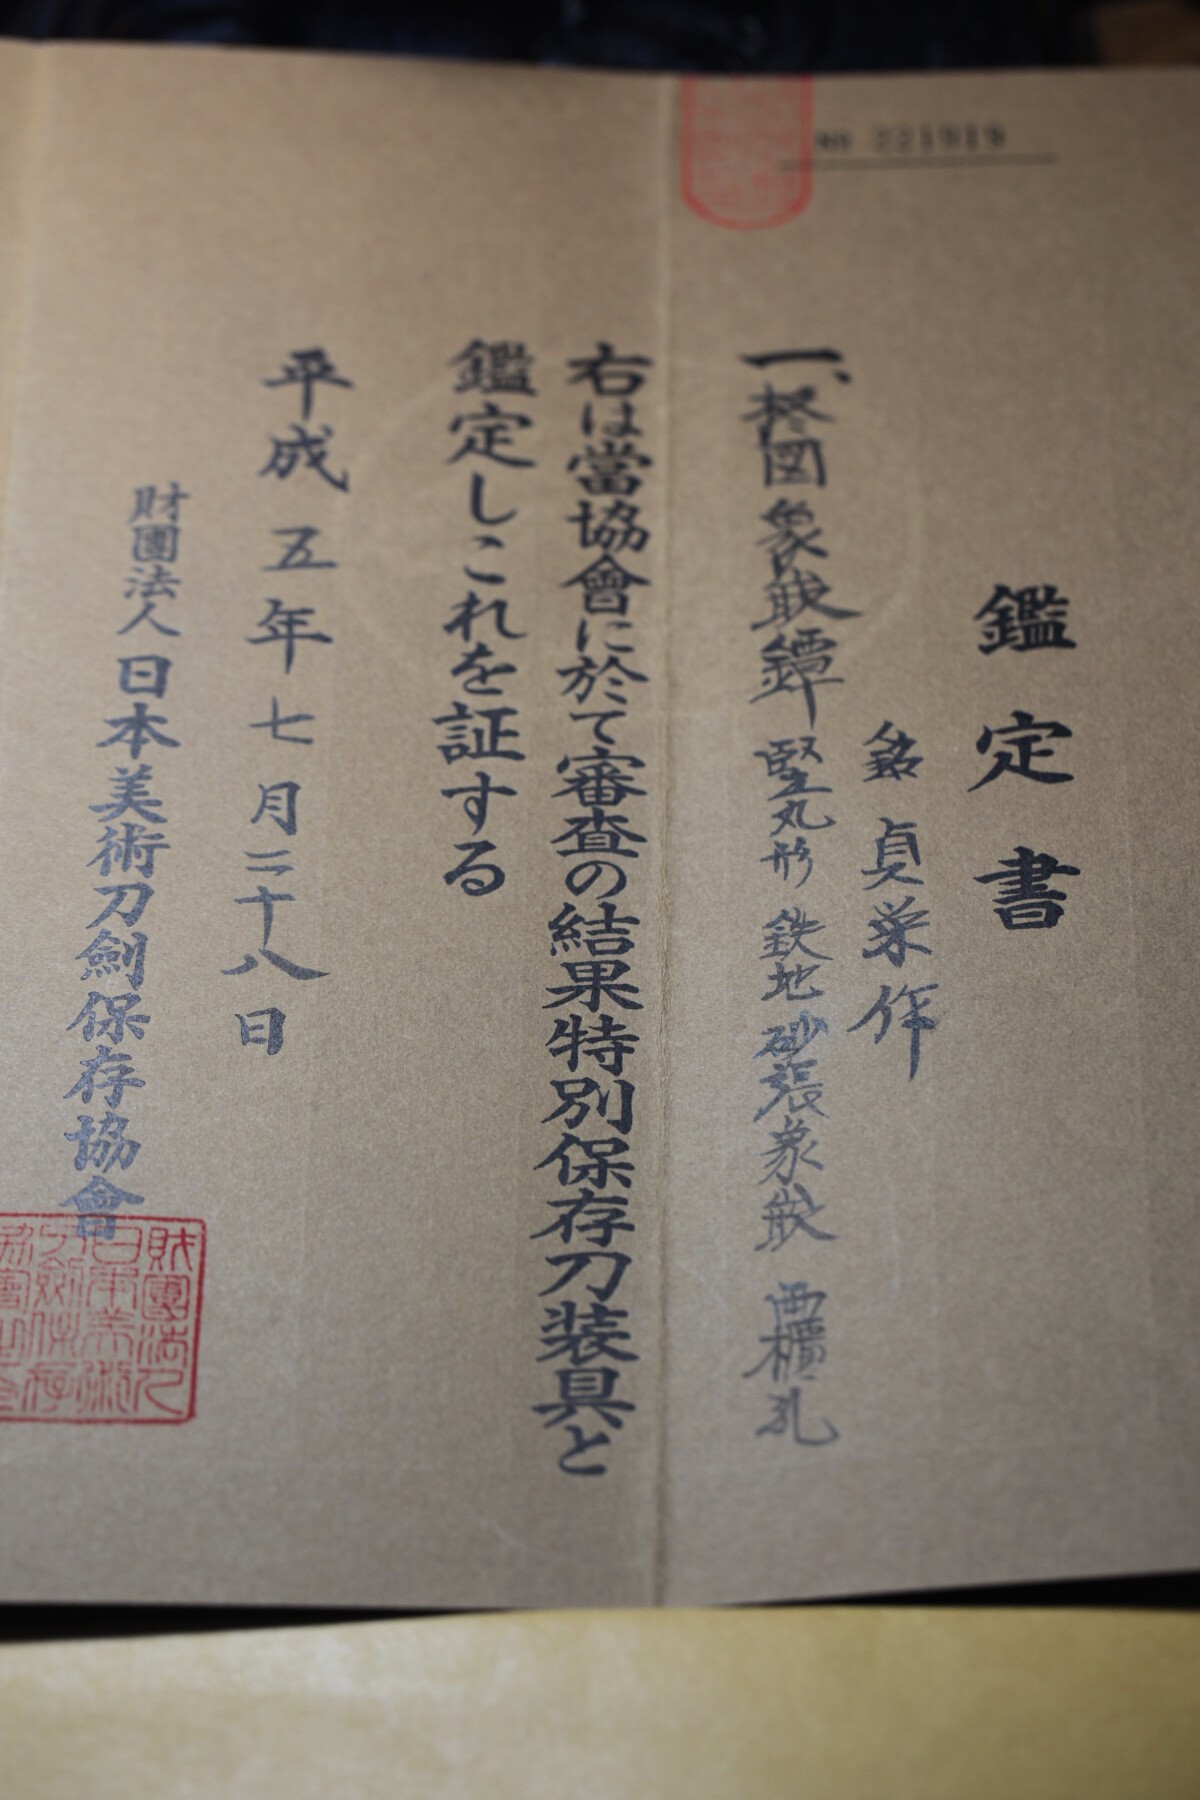 No 221919
鑑定書
銘 貞栄作
一、柊図象嵌鐔 竪丸形 鉄地 砂張象嵌 両櫃孔
右は當協會に於て審査の結果特別保存刀装具と
鑑定しこれを証する
平成五年七月二十八日
財團法人日本美術刀劍保存協會